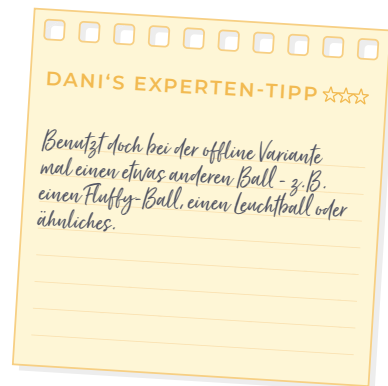 DANI'S EXPERTEN-TIPP
Benutzt doch bei der offline Variante
mal einen etwas anderen Ball - z.B.
einen Fluffy-Ball, einen Leuchtball oder
ähnliches.